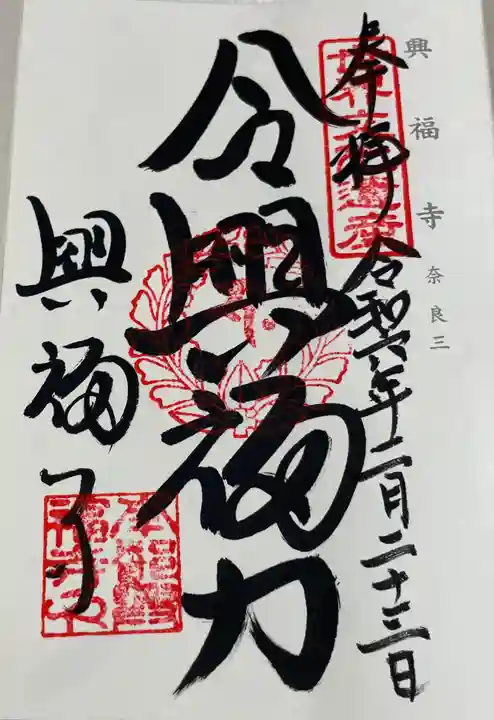 興福寺 奈良三
奉拝 令和六年二月二十三日
令興福力
興福寺